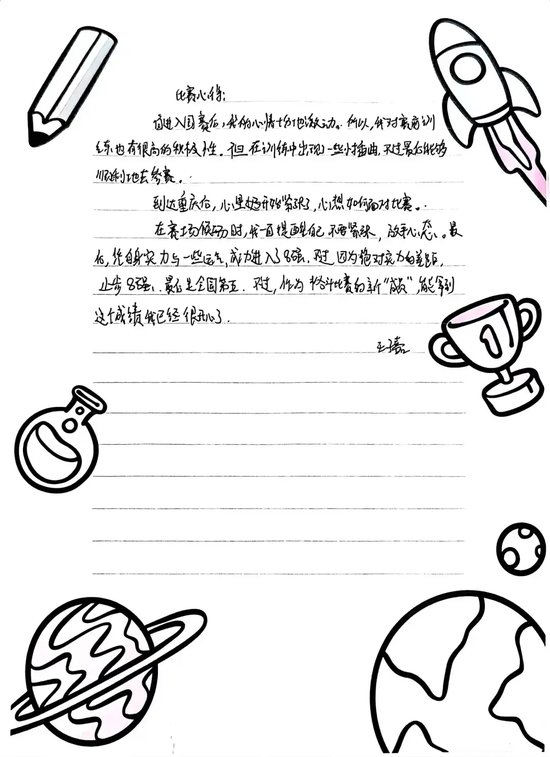 比赛心得:
自进入国赛后,我的心情十分地激动。所以,我对赛前训
练也有很高的积极性。但在训练中出现一些小插曲,不过最后能够
顺利地去参赛。
到达重庆后,心里开始紧张,心想如何面对比赛。
在赛场候场时,我一直提醒自己不要紧张,放平心态。最
后,凭自身实力与一些运气,成功进入了8强。不过,因为绝对实力的差距,
止步8强,最后是全国第五。不过,作为格斗比赛的新“成员”,能拿到
这个成绩我已经很开心了.
1